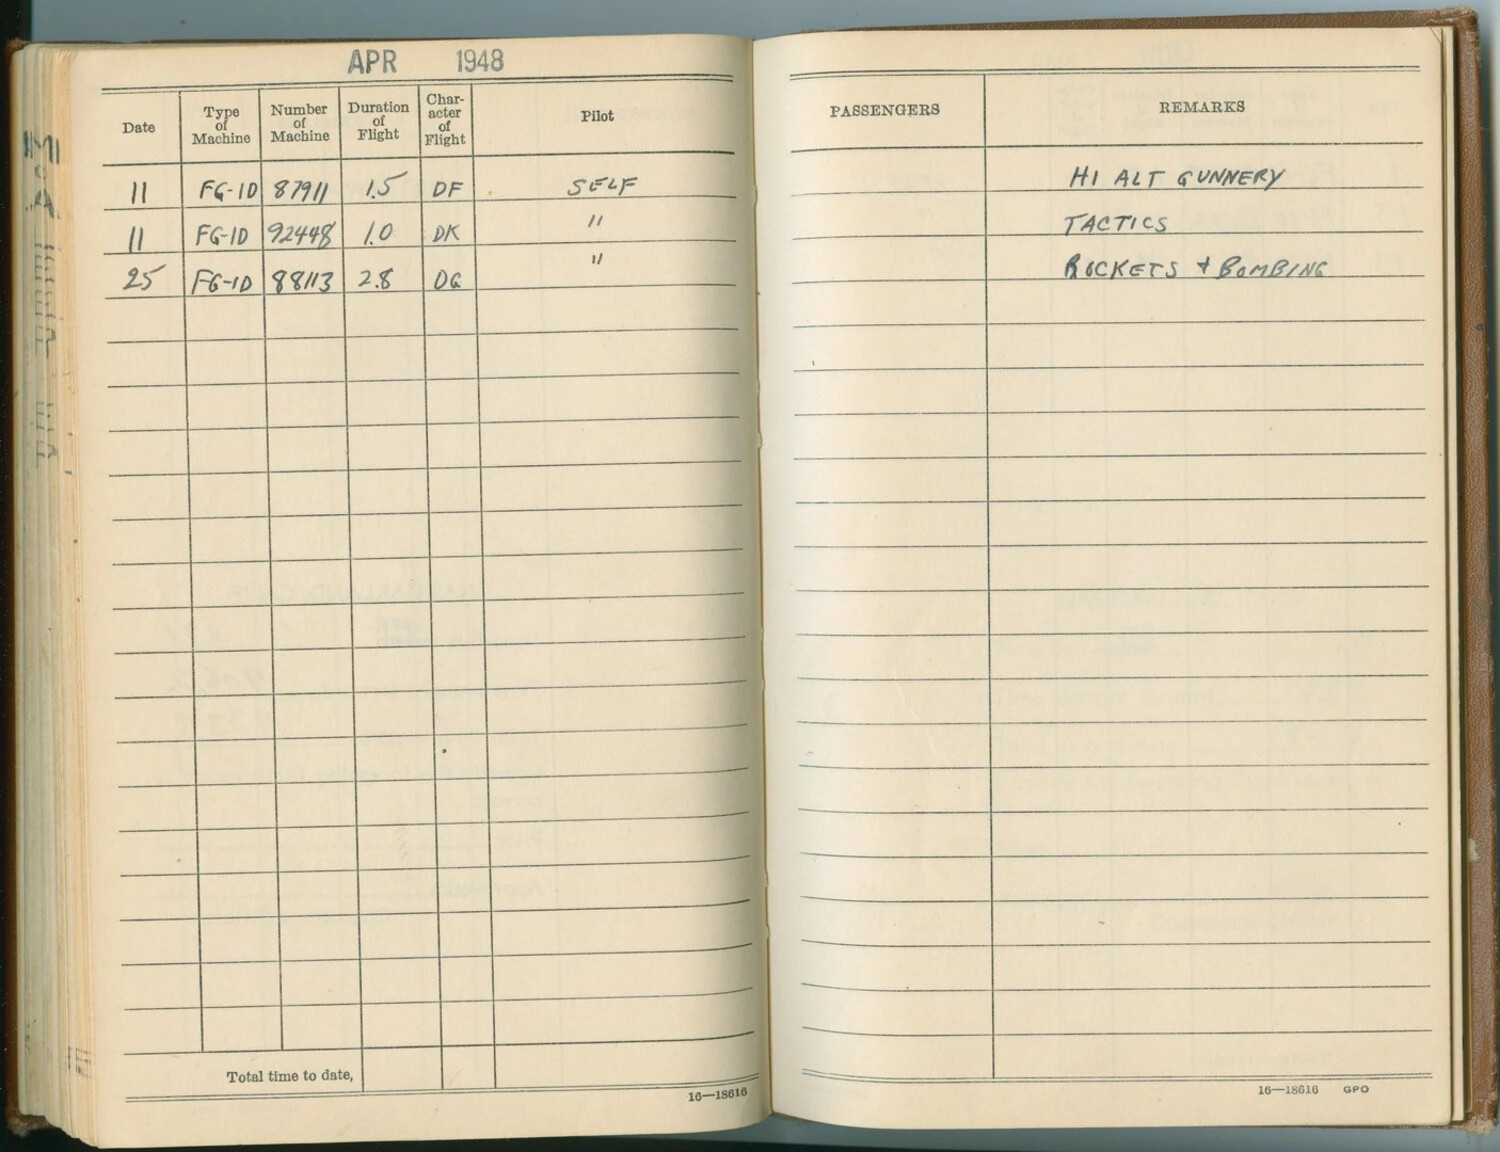 APR 1948
Date
Type of Machine
Number of Machine
Duration of Flight
Char- acter of Flight
Pilot
PASSENGERS
REMARKS
11 FG-1D 87911 1.5 DF SELF HI ALT GUNNERY
11 FG-1D 92448 1.0 DK " TACTICS
25 FG-1D 88113 2.8 DG " ROCKETS + BOMBING
Total time to date,
16—18616
16—18616 GPO